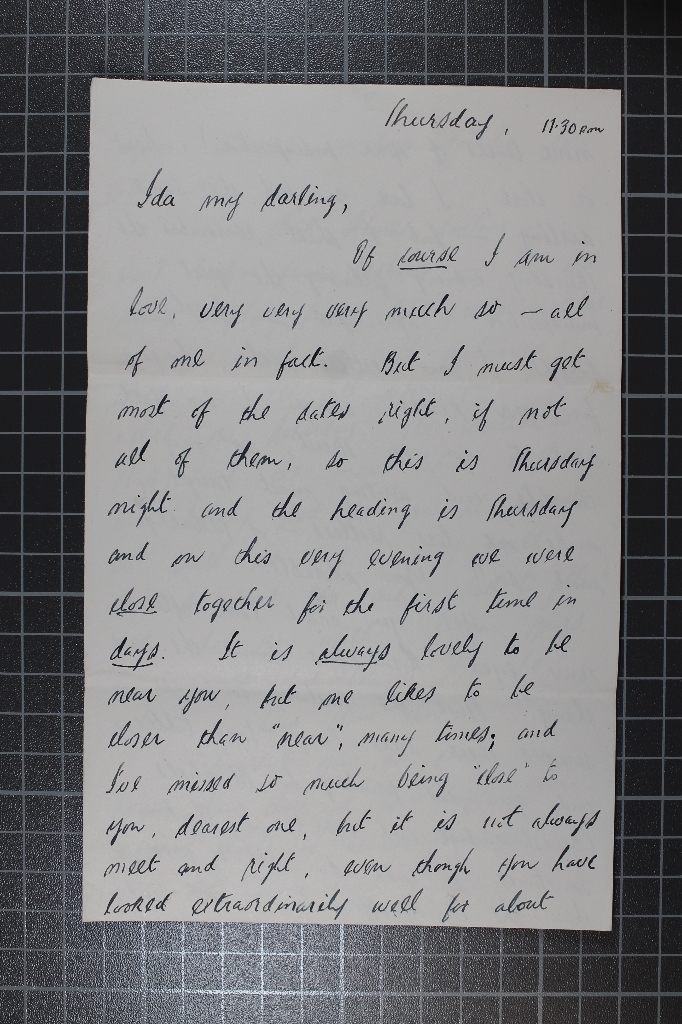 Thursday, 11.30pm
Ida my darling,
Of course I am in
love, very very very much so – all
of me in fact. But I must get
most of the dates right, if not
all of them, so this is Thursday
night and the heading is Thursday
and on this very evening we were
close together for the first time in
days. It is always lovely to be
near you, but me likes to be
closer than "near", many times; and
I've missed so much being "close" to
you, dearest one, but it is not always
meet and right, even though you have
looked extraordinarily well for about